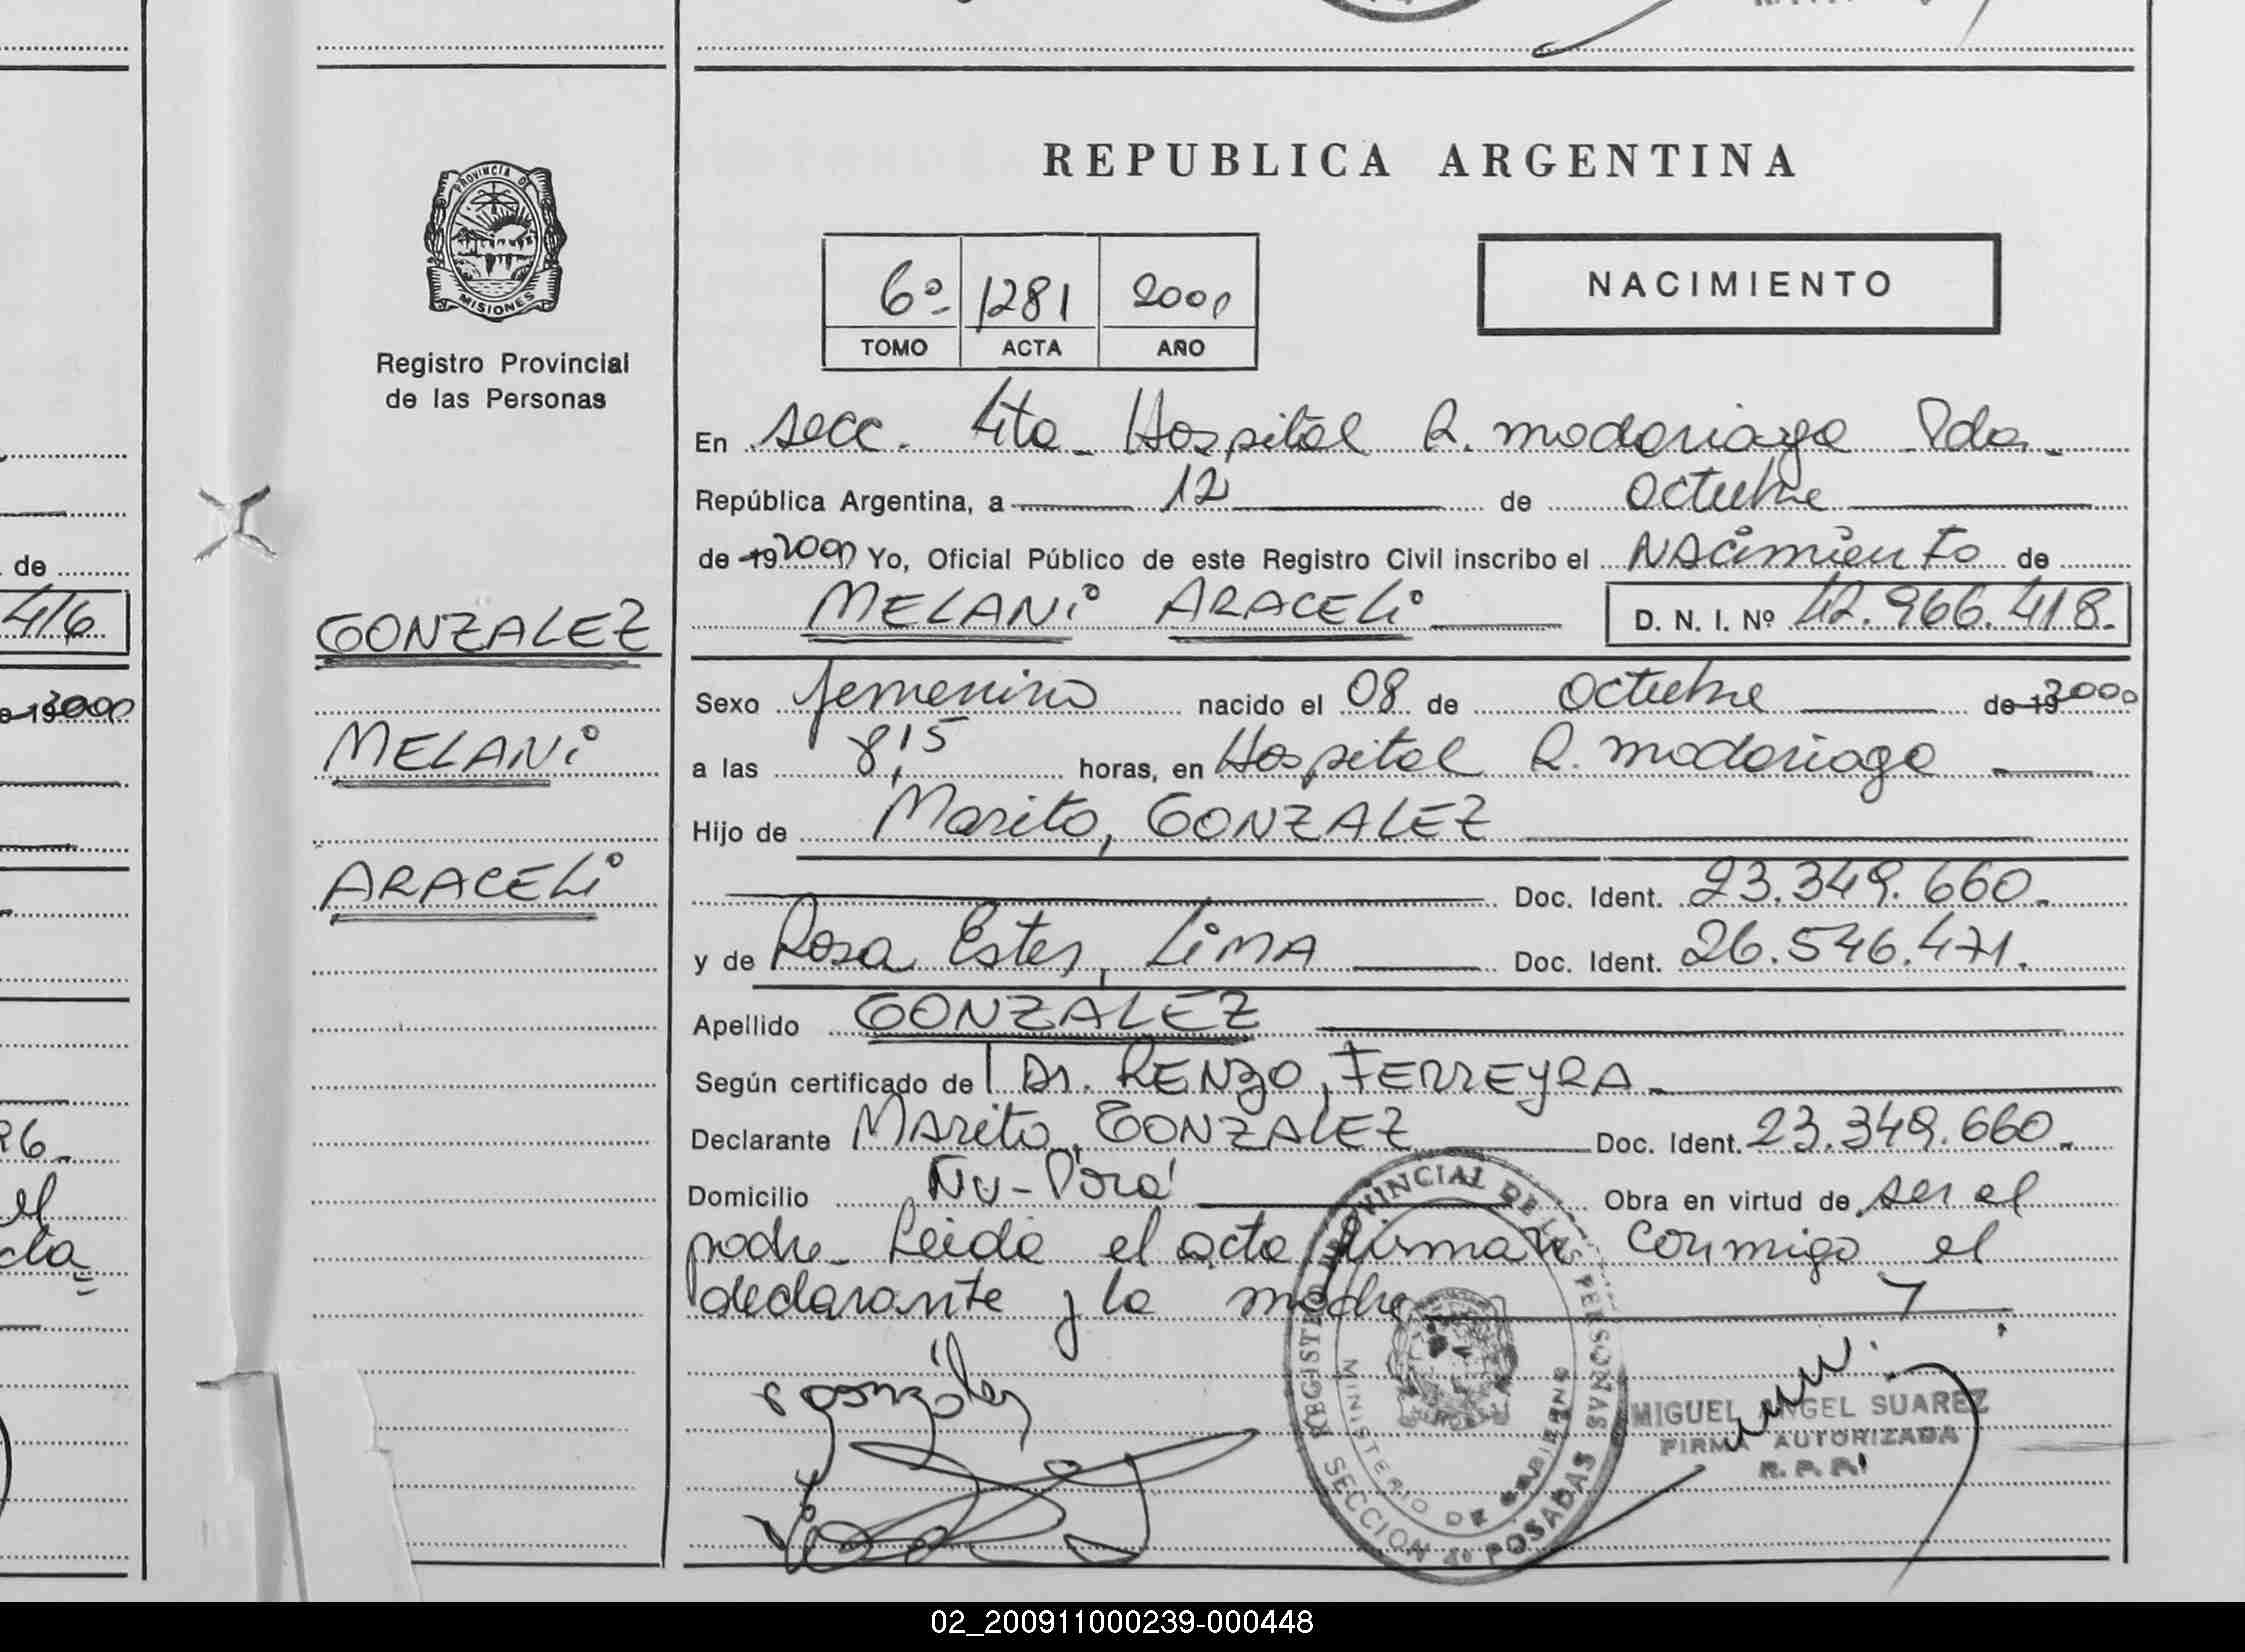 REPUBLICA ARGENTINA
PROVINCIA DE
MISIONES
Registro Provincial
de las Personas
NACIMIENTO
6º 1281 2000
TOMO ACTA AÑO
En secc. 4ta - Hospital R. madariaga Pdas.
República Argentina, a 12 de octubre
de 19 2000 Yo, Oficial Público de este Registro Civil inscribo el NACimienTo de
MELANi ARACELi D. N. I. Nº 42.966.418.
GONZALEZ
MELANi
ARACELi
Sexo femenino nacido el 08 de octubre de 19 2000
a las 8,15 horas, en Hospital R. madariaga
Hijo de Marito, GONZALEZ
Doc. Ident. 23.349.660.
y de Rosa Ester, LiMA Doc. Ident. 26.546.471.
Apellido GONZALEZ
Según certificado de Dr. RENzO, FERREYRA
Declarante MArito, GONZALEZ Doc. Ident. 23.349.660.
Domicilio Ñu-Porá Obra en virtud de ser el
padre - Leida el acta firman conmigo el
declarante y la madre
gonzalez
REGISTRO PROVINCIAL DE LAS PERSONAS
MINISTERIO DE GOBIERNO
SECCION 4º POSADAS
MIGUEL ANGEL SUAREZ
FIRMA AUTORIZADA
R. P. P.
de
416
19 2000
26
el
cta
02_200911000239-000448